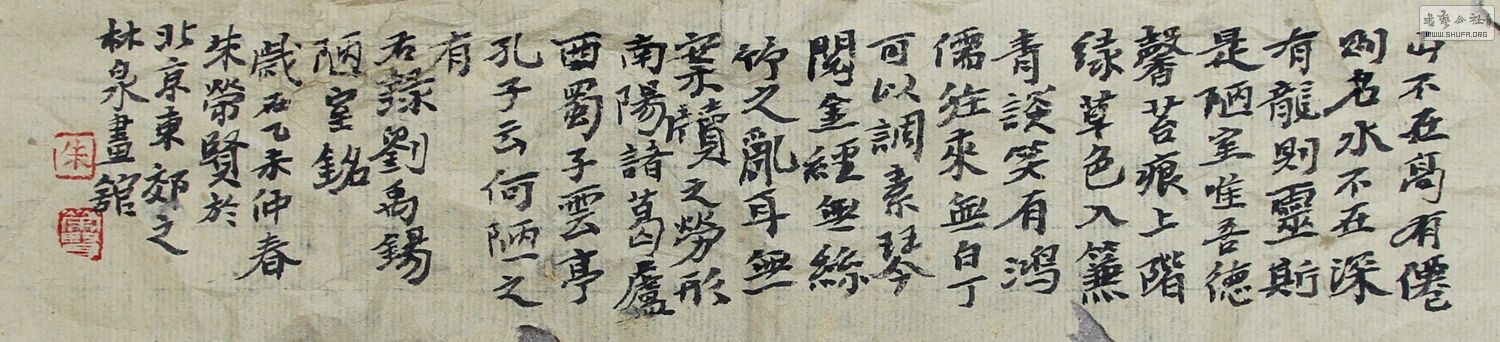 山不在高有僊
則名水不在深
有龍則靈斯
是陋室唯吾德
馨苔痕上階
緑草色入簾
青談笑有鸿
儒往來無白丁
可以調素琴
閱金經無絲
竹之亂耳無
案牘之勞形
南陽諸葛廬
西蜀子雲亭
孔子云何陋之
有
右録劉禹錫
陋室銘
歲在乙未仲春
朱榮賢於
北京東郊之
林泉畫館
朱
書藝公社
WWW.SHUFA.ORG